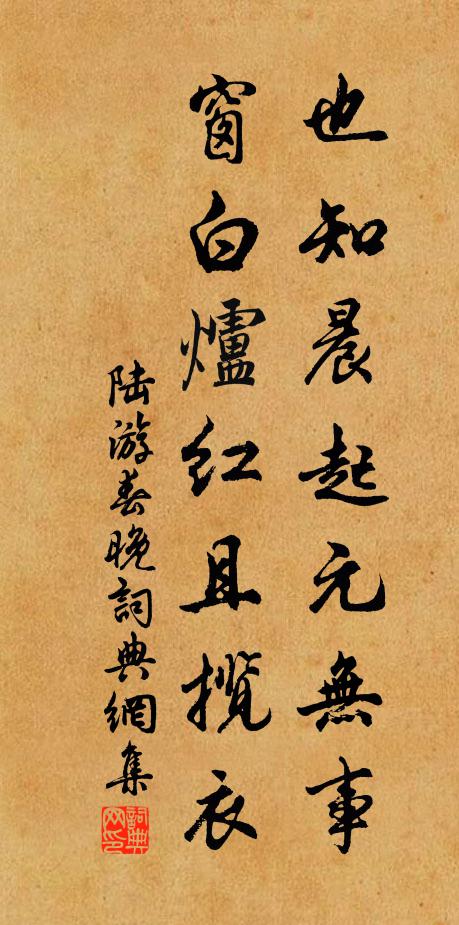 也知晨起元無事
窗白爐紅且攬衣
陆游春晚詞典網集
詞典网印